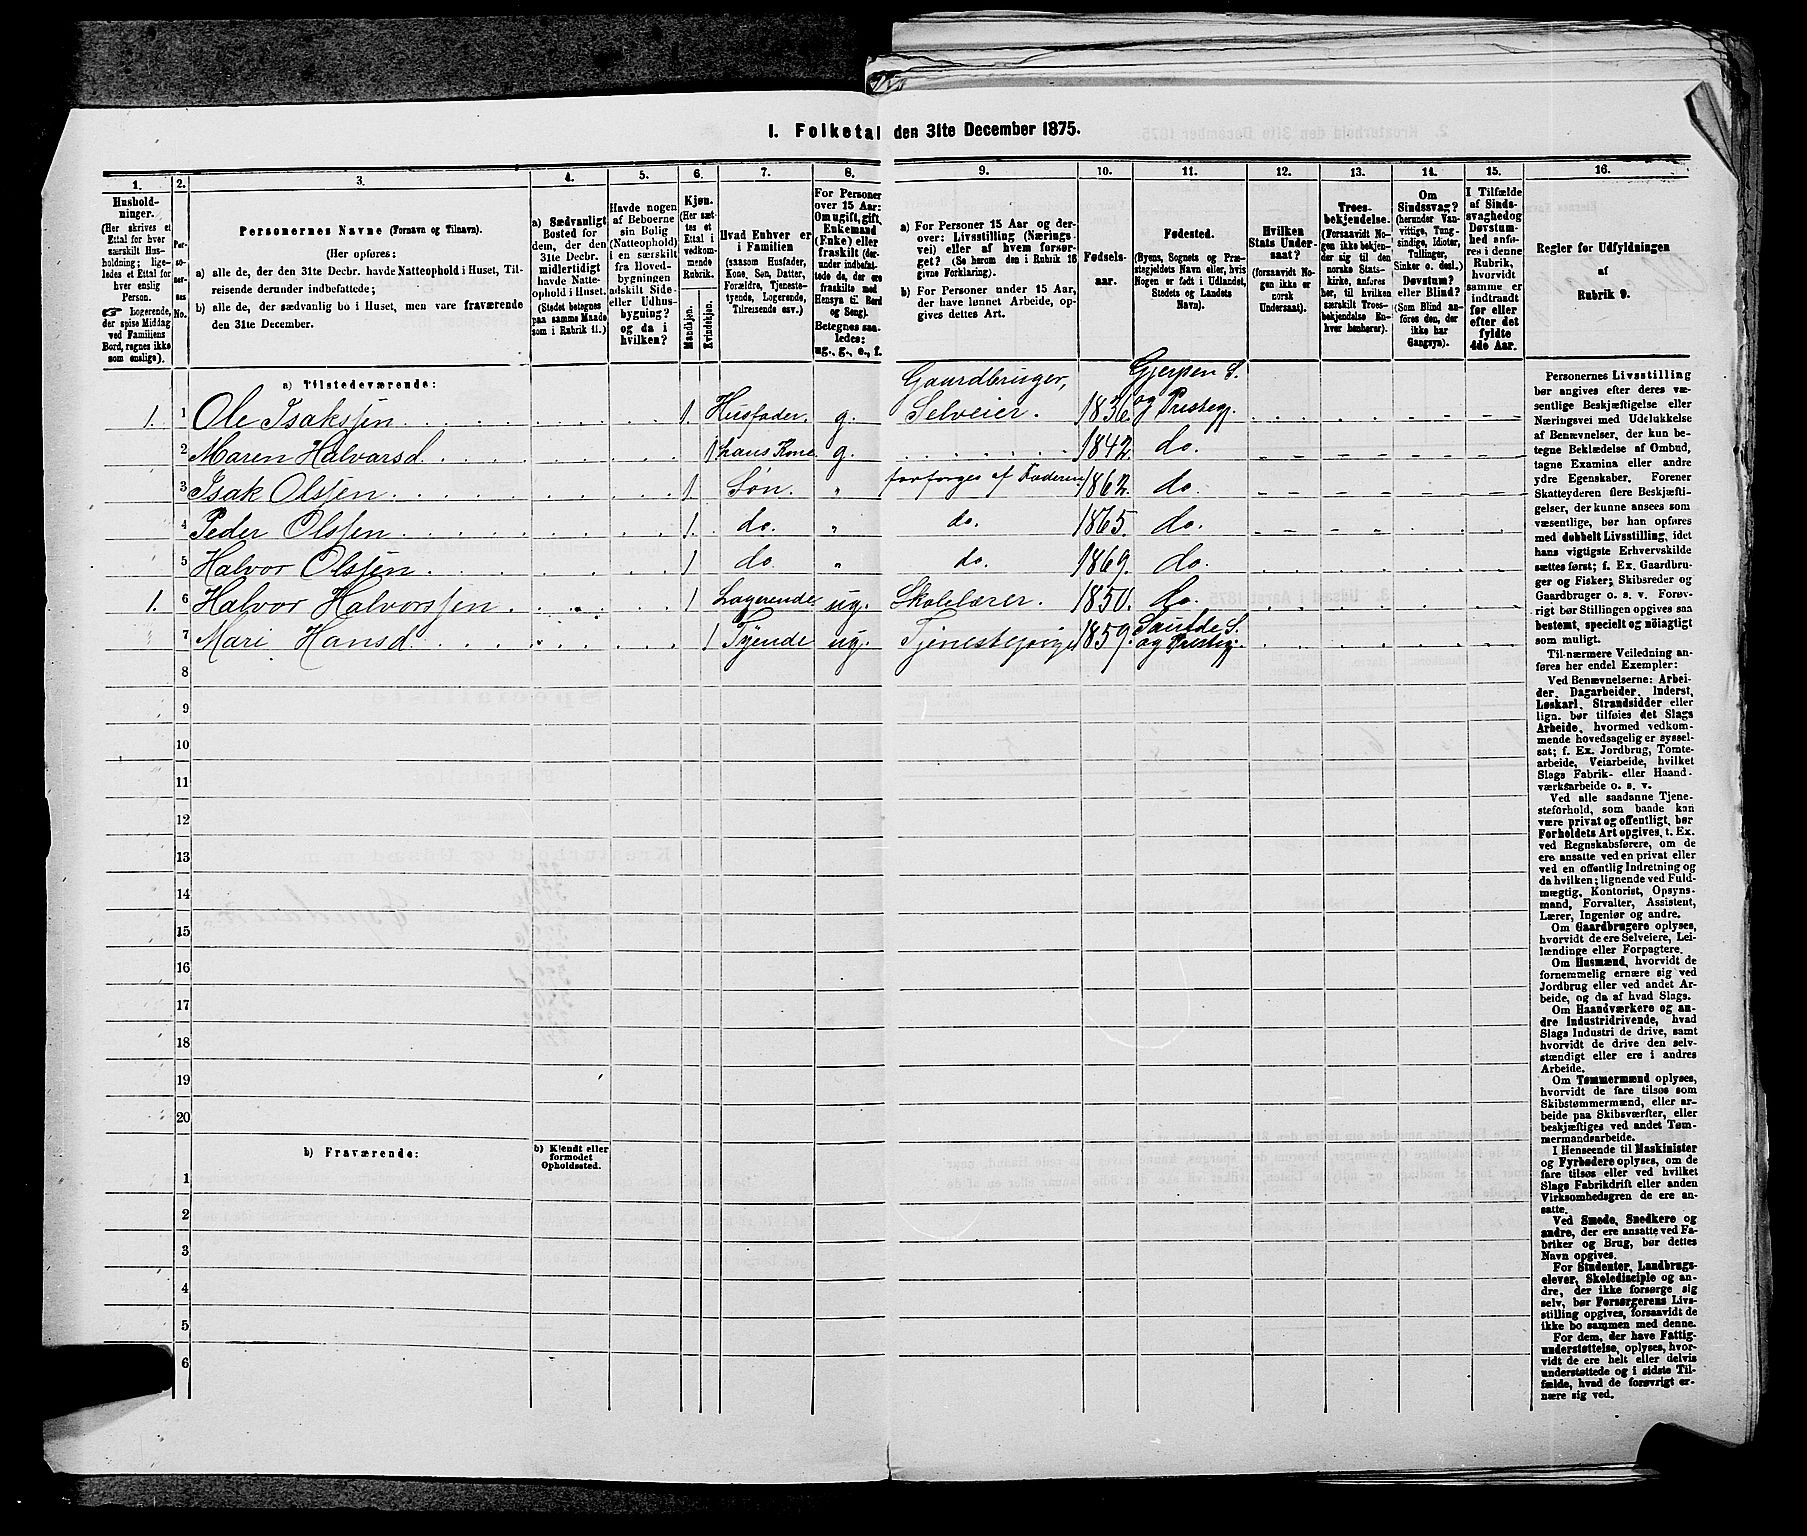 I. Folketal den 31te December 1875.
1. 2. 3. 4. 5. 6. 7. 8. 9. 10. 11. 12. 13. 14. 15. 16.
Hushold-
ninger.
(Her skrives et
Ettal for hver
særskilt Hus-
holdning; lige-
ledes et Ettal for
hver enslig
Person.
☞ Logerende,
der spise Middag
ved Familiens
Bord, regnes ikke
som enslige).
Per-
so-
ner-
nes
No.
Personernes Navne (Fornavn og Tilnavn).
(Her opføres:
a) alle de, der den 31te Decbr. havde Natteophold i Huset, Til-
reisende derunder indbefattede;
b) alle de, der sædvanlig bo i Huset, men vare fraværende
den 31te December.
a) Sædvanligt
Bosted for
dem, der den
31te Decbr.
midlertidigt
havde Natte-
ophold i Huset.
(Stedet betegnes
paa samme Maade
som i Rubrik 11.)
Havde nogen
af Beboerne
sin Bolig
(Natteophold)
i en særskilt
fra Hoved-
bygningen
adskilt Side-
eller Udhus-
bygning?
og da i
hvilken?
Kjøn.
(Her sæt-
tes et
Ettal i
vedkom-
mende
Rubrik.
Mandkjøn.
Kvindekjøn.
Hvad Enhver er
i Familien
(saasom Husfader,
Kone, Søn, Datter,
Forældre, Tjeneste-
tyende, Logerende,
Tilreisende osv.)
For Personer
over 15 Aar:
Om ugift, gift,
Enkemand
(Enke) eller
fraskilt (der-
under indbefat-
tede de, der ere
fraskilte med
Hensyn til Bord
og Seng).
Betegnes saa-
ledes:
ug., g., e., f.
a) For Personer 15 Aar og der-
over: Livsstilling (Nærings-
vei) eller af hvem forsør-
get? (Se herom den i Rubrik 16
givne Forklaring).
b) For Personer under 15 Aar,
der have lønnet Arbeide, op-
gives dettes Art.
Fødsels-
aar.
Fødested.
(Byens, Sognets og Præ-
stegjeldets Navn eller, hvis
Nogen er født i Udlandet,
Stedets og Landets
Navn).
Hvilken
Stats Under-
saat?
(forsaavidt No-
gen ikke er
norsk
Undersaat).
Troes-
bekjendelse.
(Forsaavidt No-
gen ikke bekjen-
der sig til den
norske Stats-
kirke, anføres
her, til hvilken
særskilt Troes-
bekjendelse En-
hver henhører).
Om
Sindssvag?
(herunder Van-
vittige, Tung-
sindige, Idioter,
Tullinger,
Sinker o. desl.)
Døvstum?
eller Blind?
(Som Blind an-
føres den, der
ikke har
Gangsyn).
I Tilfælde
af Sinds-
svaghed og
Døvstum-
hed anfø-
res i denne
Rubrik,
hvorvidt
samme er
indtraadt
før eller
efter det
fyldte
4de Aar.
Regler for Udfyldningen
af
Rubrik 9.
a) Tilstedeværende:
Gaardbruger, Gjerpen S.
1. 1 Ole Isakssen 1. Husfader g. Selveier. 1836. og Presteg.
2 Maren Halvorsd. 1 hans Kone g. 1842. do.
3 Isak Olssen 1 Søn. " forsørges af Faderen 1862. do.
4 Peder Olssen 1. do. " do. 1865. do.
5 Halvor Olssen 1 do. " do. 1869. do.
1. 6 Halvor Halvorssen 1 Logerende ug. Skolelærer. 1850. do.
7 Mari Hansd. 1 Tyende ug. 1859. Saude S.
og Presteg.
8
9
10
11
12
13
14
15
16
17
18
19
20
b) Fraværende:
b) Kjendt eller
formodet
Opholdssted.
1
2
3
4
5
6
Personernes Livsstilling
bør angives efter deres væ-
sentlige Beskjæftigelse eller
Næringsvei med Udelukkelse
af Benævnelser, der kun be-
tegne Beklædelse af Ombud,
tagne Examina eller andre
ydre Egenskaber. Forener
Skatteyderen flere Beskjæfti-
gelser, der kunne ansees som
væsentlige, bør han opføres
med dobbelt Livsstilling, idet
hans vigtigste Erhvervskilde
sættes først; f. Ex. Gaardbru-
ger og Fisker; Skibsreder og
Gaardbruger o. s. v. Forøv-
rigt bør Stillingen opgives saa
bestemt, specielt og nöiagtigt
som muligt.
Til nærmere Veiledning an-
føres her endel Exempler:
Ved Benævnelserne: Arbei-
der, Dagarbeider, Inderst,
Løskarl, Strandsidder eller
lign. bør tilføies det Slags
Arbeide, hvormed vedkom-
mende hovedsagelig er syssel-
sat; f. Ex. Jordbrug, Tomte-
arbeide, Veiarbeide, hvilket
Slags Fabrik- eller Haand-
værksarbeide o. s. v.
Ved alle saadanne Tjene-
steforhold, som baade kan
være privat og offentligt, bør
Forholdets Art opgives, t. Ex.
ved Regnskabsførere, om de
ere ansatte ved en privat eller
ved en offentlig Indretning og
da hvilken; lignende ved Fuld-
mægtig, Kontorist, Opsyns-
mand, Forvalter, Assistent,
Lærer, Ingeniør og andre.
Om Gaardbrugere oplyses,
hvorvidt de ere Selveiere, Lei-
lændinge eller Forpagtere.
Om Husmænd, hvorvidt de
fornemmelig ernære sig ved
Jordbrug eller ved andet Ar-
beide, og da af hvad Slags.
Om Haandværkere og an-
dre Industridrivende, hvad
Slags Industri de drive, samt
hvorvidt de drive den selv-
stændigt eller ere i andres
Arbeide.
Om Tømmermænd oplyses,
hvorvidt de fare tilsøs som
Skibstømmermænd, eller ar-
beide paa Skibsværfter, eller
beskjæftiges ved andet Tøm-
mermandsarbeide.
I Henseende til Maskinister
og Fyrbødere oplyses, om de
fare tilsøs eller ved hvilket
Slags Fabrikdrift eller anden
Virksomhedsgren de ere an-
satte.
Ved Smede, Snedkere og
andre, der ere ansatte ved Fa-
briker og Brug, bør dettes
Navn opgives.
For Studenter, Landbrugs-
elever, Skoledisciple og an-
dre, der ikke forsørge sig
selv, bør Forsørgerens Livs-
stilling opgives, forsaavidt de
ikke bo sammen med denne.
For dem, der have Fattig-
understøttelse, oplyses, hvor-
vidt de ere helt eller delvis
understøttede og i sidste Til-
fælde, hvad de forøvrigt er-
nære sig ved.